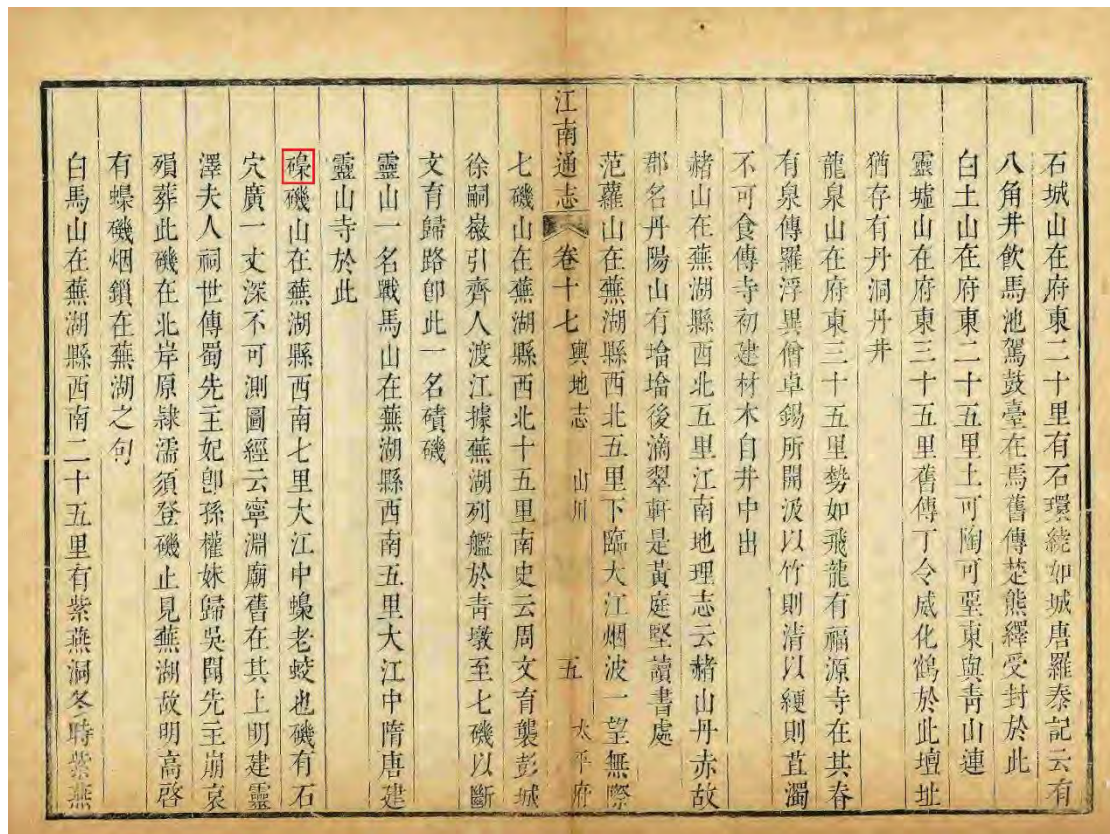 石城山在府東二十里有石環繞如城唐羅泰記云有
八角井飲馬池駕鼓臺在焉舊傳楚熊繹受封於此
白土山在府東二十五里土可陶可堊東與青山連
靈墟山在府東三十五里舊傳丁令威化鶴於此壇址
猶存有丹洞丹井
龍泉山在府東三十五里勢如飛龍有福源寺在其脊
有泉傳羅浮異僧卓錫所開汲以竹則清以綆則苴濁
不可食傳寺初建材木自井中出
赭山在蕪湖縣西北五里江南地理志云赭山丹赤故
郡名丹陽山有墖墖後滴翠軒是黃庭堅讀書處
范蘿山在蕪湖縣西北五里下臨大江烟波一望無際
江南通志 卷十七 輿地志 山川 五 太平府
七磯山在蕪湖縣西北十五里南史云周文育襲彭城
徐嗣嶶引齊人渡江據蕪湖列艦於青墩至七磯以斷
文育歸路卽此一名磧磯
靈山一名戰馬山在蕪湖縣西南五里大江中隋唐建
靈山寺於此
磯山在蕪湖縣西南七里大江中蟂老蛟也磯有石
穴廣一丈深不可測圖經云寧淵廟舊在其上明建靈
澤夫人祠世傳蜀先主妃卽孫權妹歸吳聞先主崩哀
殞葬此磯在北岸原隷濡須登磯止見蕪湖故明高啓
有蟂磯烟鎖在蕪湖之句
白馬山在蕪湖縣西南二十五里有紫燕洞冬時紫燕